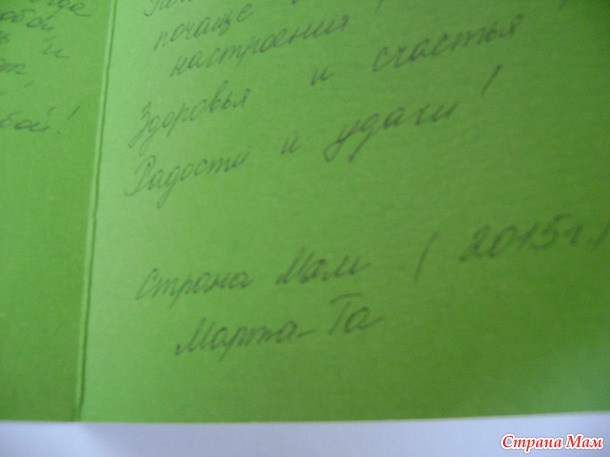 бой!
почаще
настроения
Здоровья и счастья
Радости и удачи!
Страна Мам (2015г.)
Марта-Та
Страна Мам